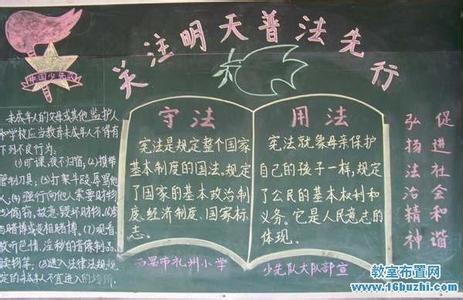 关注明天普法先行
中国少年先
未成年人的父母或其他监护人
和学校应当教育未成年人不得有
下列不良行为:
(1)旷课、夜不归宿;(2)携带
管制刀具;(3)打架斗殴、辱骂他
人;(4)强行向他人索要财物;
(5)偷窃、故意毁坏财物;
(6)参与赌博或变相赌博;(7)观看、
收听色情、淫秽的音像制品、
读物等;(8)进入法律法规规
定未成年人不宜进入的场所
守法
宪法是规定整个国家
基本制度的国法。规定
了国家的基本政治制
度、经济制度、国家标
志。
用法
宪法就象母亲保护
自己的孩子一样,规定
了公民的基本权利和
义务。它是人民意志的
体现。
促进社会和谐
弘扬法治精神
礼州小学
少先队大队部宣
教室布置网
www.16buzhi.com